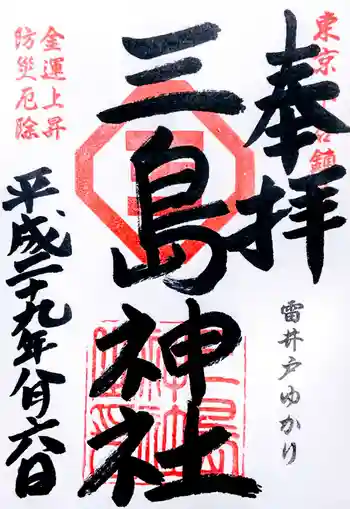 奉拝
雷井戸ゆかり
三島神社
金運上昇
防災厄除
平成二十九年八月六日